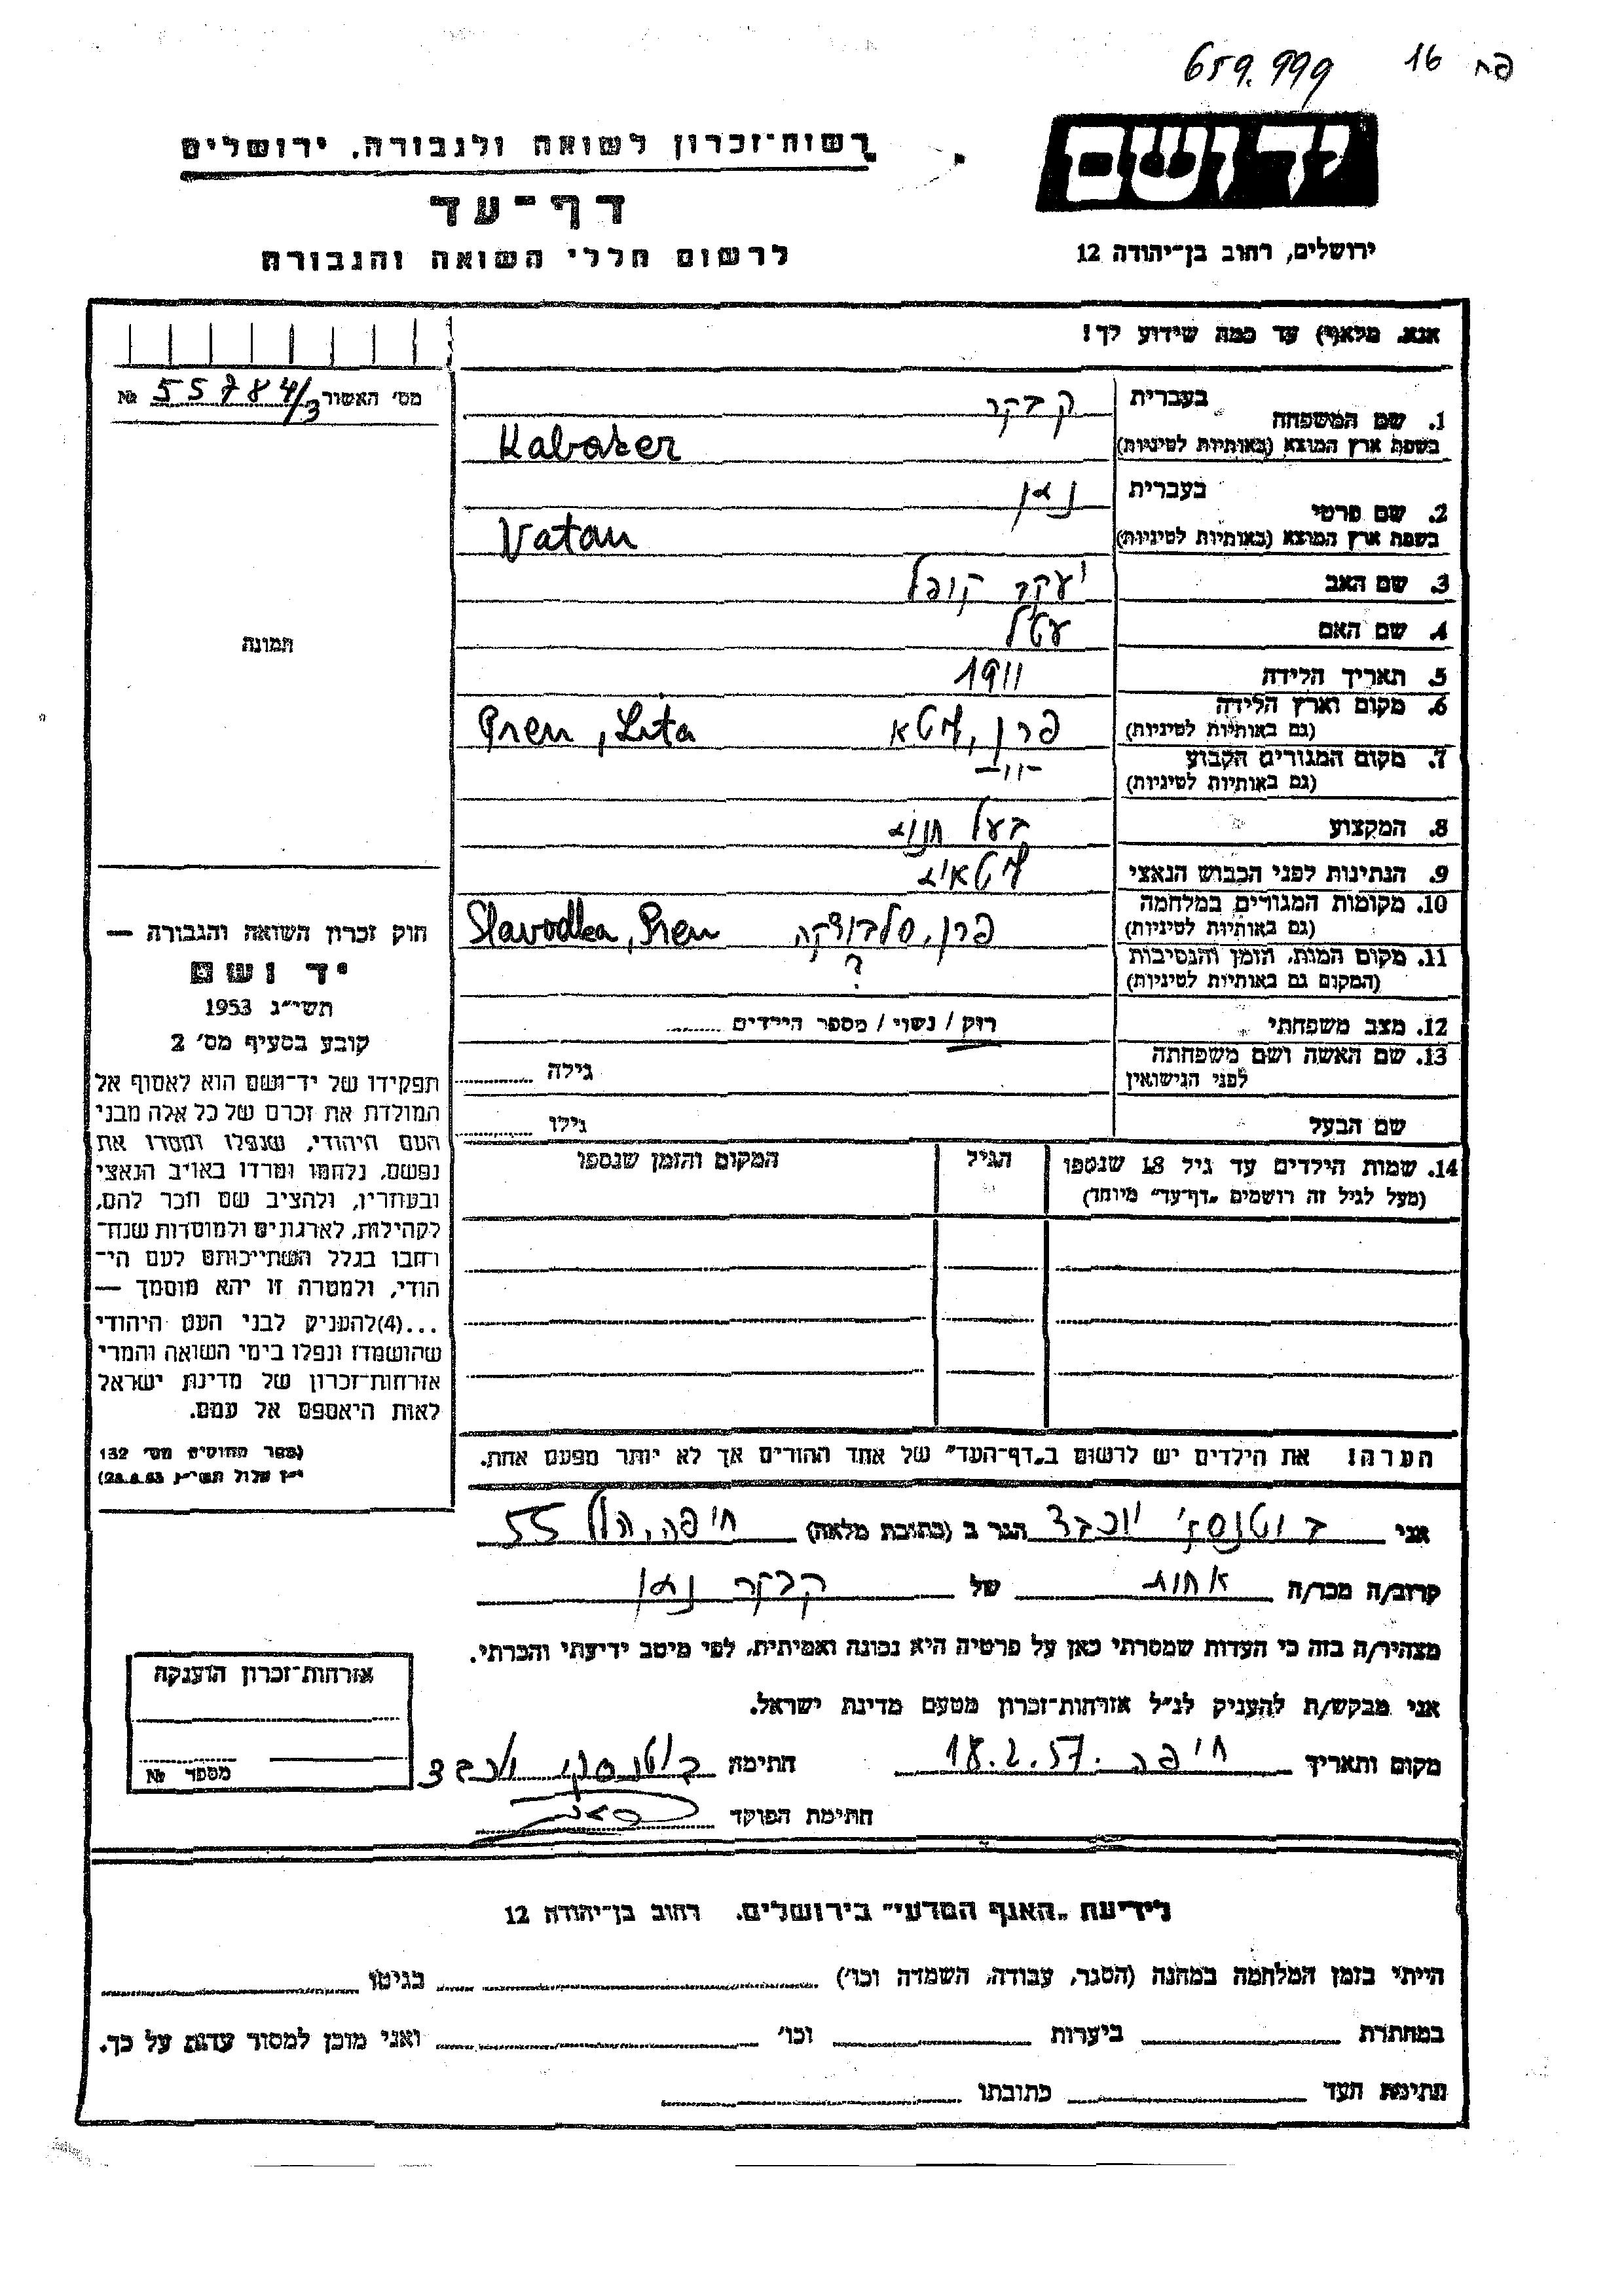 659.999 16 פח
יד ושם
ירושלים, רחוב בן־יהודה 12
רשות־זכרון לשואה ולגבורה, ירושלים
דף־עד
לרשום חללי השואה והגבורה
אנא, מלא(י) עד כמה שידוע לך!
מס' האשור 55784/3 №
תמונה
1. שם המשפחה בעברית קבקר
בשפת ארץ המוצא (באותיות לטיניות) Kabaker
2. שם פרטי בעברית נתן
בשפת ארץ המוצא (באותיות לטיניות) Natan
3. שם האב יעקב קופל
4. שם האם עטל
5. תאריך הלידה 1911
6. מקום וארץ הלידה (גם באותיות לטיניות) פרן, ליטא Pren, Lita
7. מקום המגורים הקבוע (גם באותיות לטיניות) -"-
8. המקצוע בעל חנות
9. הנתינות לפני הכבוש הנאצי ליטאית
10. מקומות המגורים במלחמה (גם באותיות לטיניות) פרן, סלבודקה Slavodka, Pren
11. מקום המות, הזמן והנסיבות (המקום גם באותיות לטיניות) ?
12. מצב משפחתי רוק / נשוי / מספר הילדים
13. שם האשה ושם משפחתה לפני הנישואין גילה
שם הבעל גילו
14. שמות הילדים עד גיל 18 שנספו הגיל המקום והזמן שנספו
(מעל לגיל זה רושמים „דף־עד" מיוחד)
הערה! את הילדים יש לרשום ב„דף־העד" של אחד ההורים אך לא יותר מפעם אחת.
חוק זכרון השואה והגבורה —
יד ושם
תשי"ג 1953
קובע בסעיף מס' 2
תפקידו של יד־ושם הוא לאסוף אל
המולדת את זכרם של כל אלה מבני
העם היהודי, שנפלו ומסרו את
נפשם, נלחמו ומרדו באויב הנאצי
ובעוזריו, ולהציב שם וזכר להם,
לקהילות, לארגונים ולמוסדות שנח־
רחבו בגלל השתייכותם לעם הי־
הודי, ולמטרה זו יהא מוסמך —
...(4)להעניק לבני העם היהודי
שהושמדו ונפלו בימי השואה והמרי
אזרחות־זכרון של מדינת ישראל
לאות היאספם אל עמם.
(ספר החוקים מס' 132
י"ז אלול תשי"ג 28.8.53)
אני יוכבד הגר ב (כתובת מלאה) חיפה, הלל 55
קרוב/ה מכר/ה אחות של קבקר נתן
מצהיר/ה בזה כי העדות שמסרתי כאן על פרטיה היא נכונה ואמיתית, לפי מיטב ידיעתי והכרתי.
אני מבקש/ת להעניק לנ"ל אזרחות־זכרון מטעם מדינת ישראל.
מקום ותאריך חיפה 18.2.57 חתימה יוכבד
חתימת הפוקד
אזרחות־זכרון הוענקה
מספר №
לידיעת „האגף המדעי" בירושלים, רחוב בן־יהודה 12
הייתי בזמן המלחמה במחנה (הסגר, עבודה, השמדה וכו') בגיטו
במחתרת ביערות וכו' ואני מוכן למסור עדות על כך.
חתימת העד כתובתו